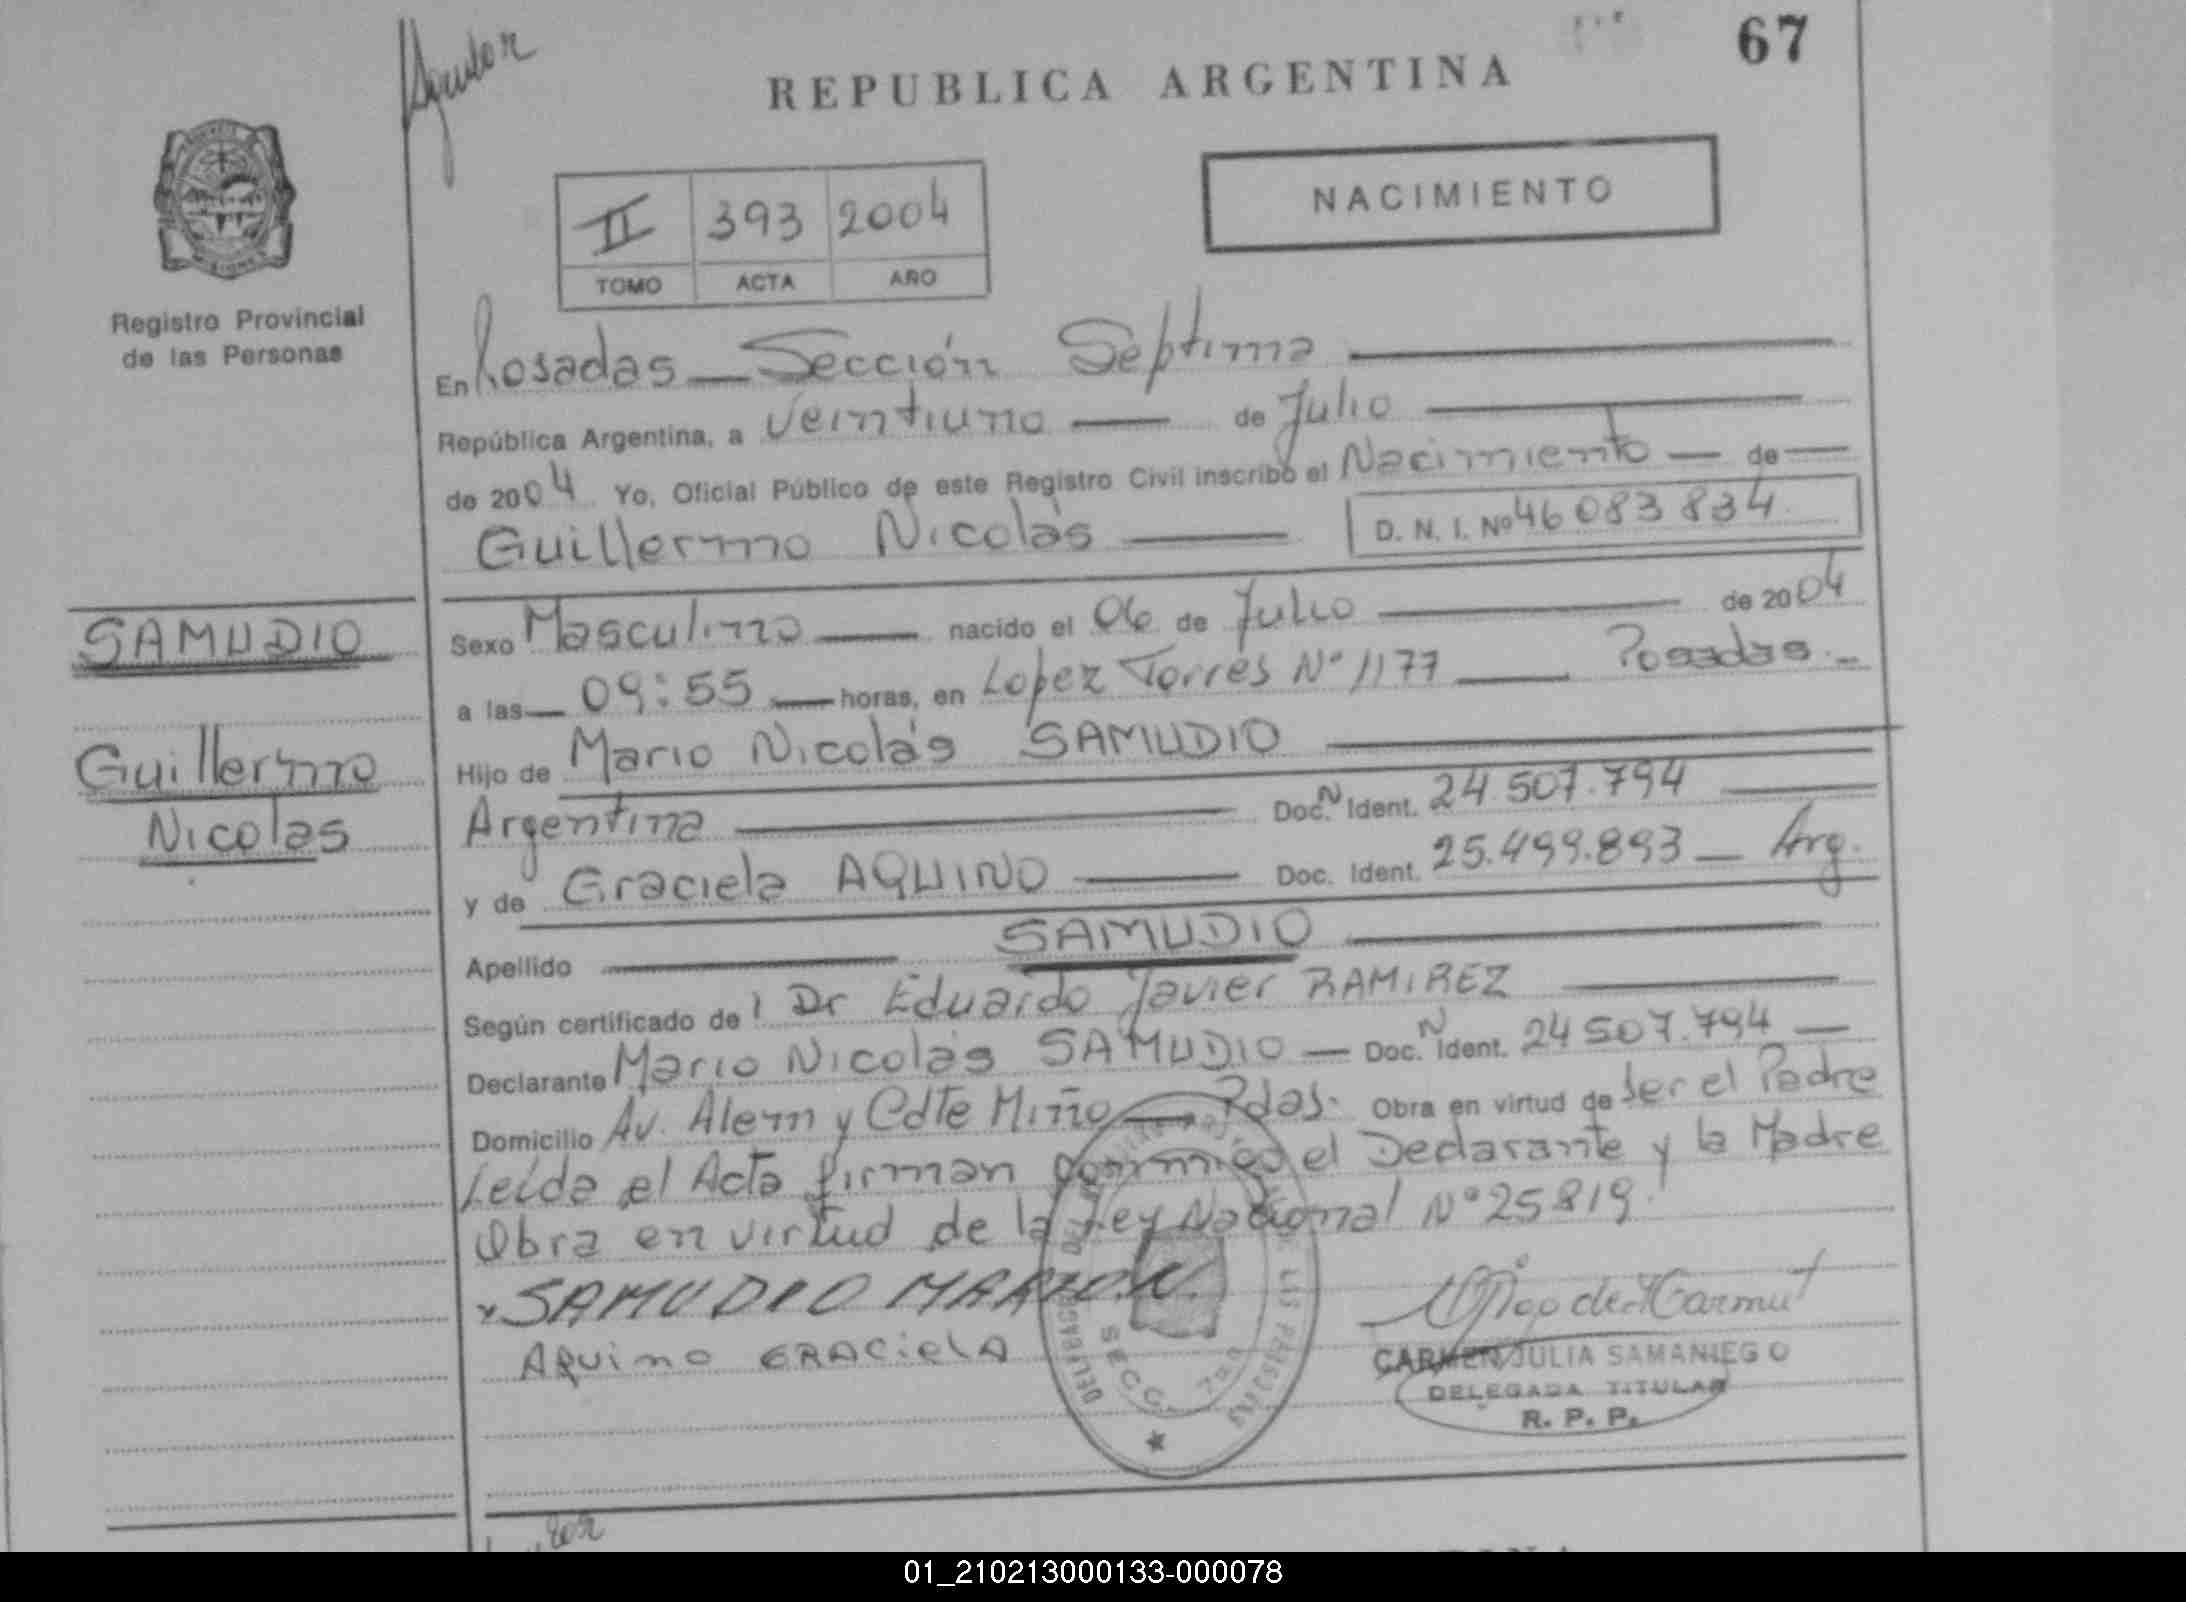 Aguilar
REPUBLICA ARGENTINA
67
II 393 2004
TOMO ACTA AÑO
NACIMIENTO
Registro Provincial
de las Personas
En Posadas — Sección Septima —
República Argentina, a veintiuno — de Julio —
de 2004 Yo, Oficial Público de este Registro Civil inscribo el Nacimiento — de —
Guillermo Nicolás — D. N. I. Nº 46 083 834
SAMUDIO
Guillermo
Nicolas
Sexo Masculino — nacido el 06 de Julio — de 2004
a las — 09:55 — horas, en Lopez Torres Nº 1177 — Posadas. —
Hijo de Mario Nicolás SAMUDIO —
Argentina — Doc. N Ident. 24.507.794 —
y de Graciela AQUINO — Doc. Ident. 25.499.893 — Arg.
Apellido — SAMUDIO —
Según certificado del Dr Eduardo Javier RAMIREZ —
Declarante Mario Nicolás SAMUDIO — Doc. N Ident. 24 507.794 —
Domicilio Av. Alem y Cdte Miño — Pdas. Obra en virtud de ser el Padre
Leída el Acta firman conmigo el Declarante y la Madre
Obra en virtud de la Ley Nacional Nº 25819.
SAMUDIO MARIO.N.
AQuino GRACielA
SECC. 7ma
CARMEN JULIA SAMANIEGO
DELEGADA TITULAR
R. P. P.
01_210213000133-000078